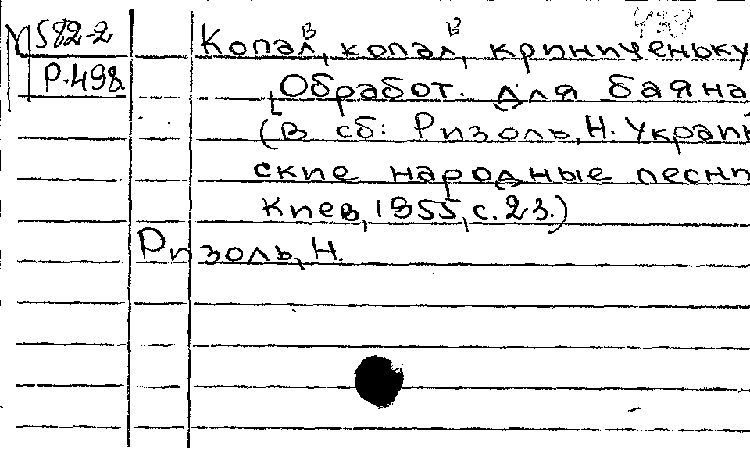 М 582-2
Р-498.
Копалв, копалв, криниченьку
[Обработ. для баяна
(В сб: Ризоль, Н. Украин
ские народные песни
Киев, 1955, с. 23.)
Ризоль, Н.